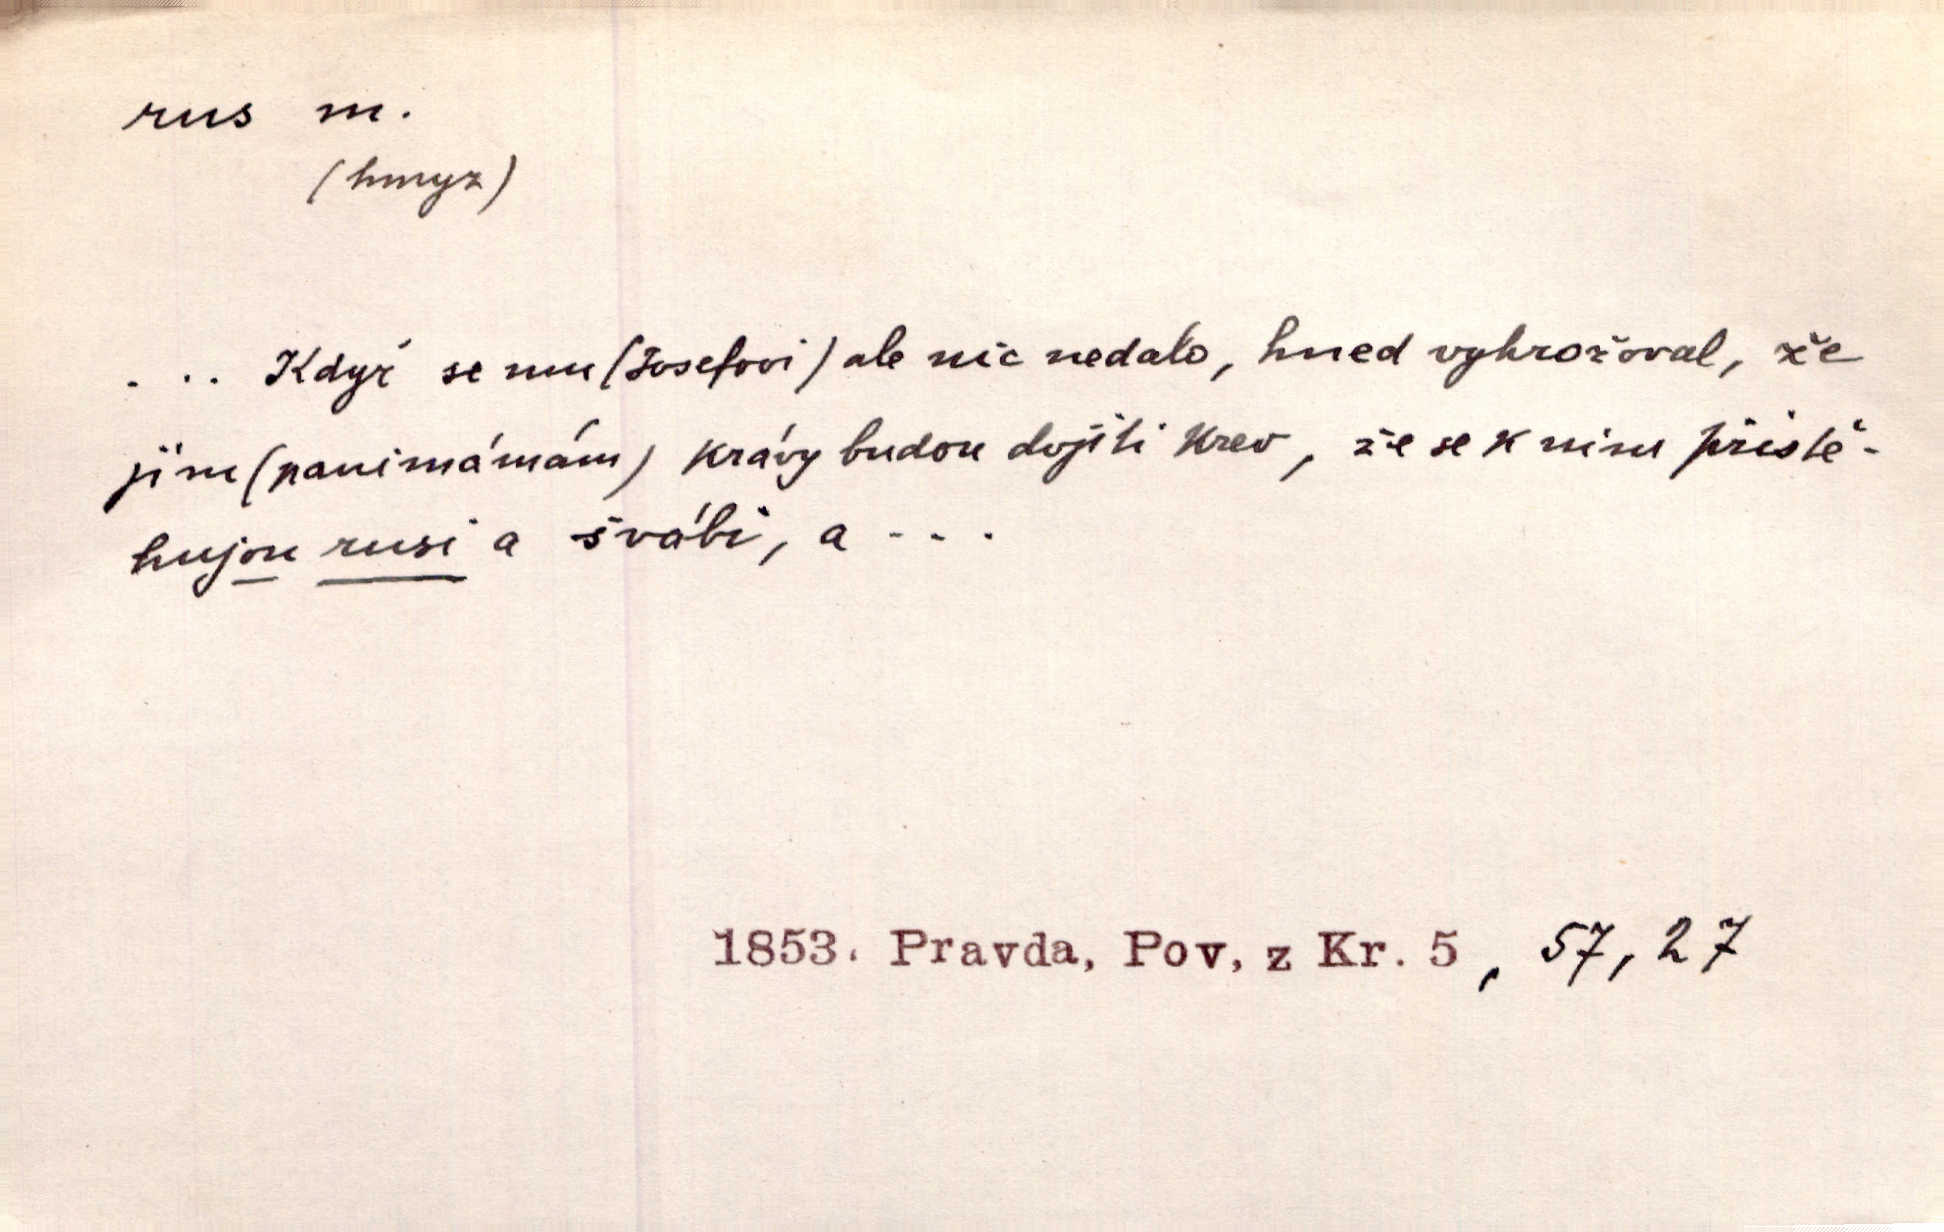 rus m.
(hmyz)
... Když se mu (Josefovi) ale nic nedalo, hned vyhrožoval, že
jim (panimámám) krávy budou dojiti krev, že se k nim přistě-
hujou rusi a švábi, a ...
1853. Pravda, Pov. z Kr. 5, 57, 27